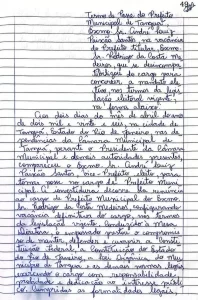 Termo de Posse do Prefeito
Municipal de Tanguá
Exmo. Sr. André Luiz
Paixão Santos, na vacância
do Prefeito titular, Exmo.
Sr. Rodrigo da Costa Me
deiros, que se desincompa
do cargo para
concorrer a mandato ele
tivo, nos termos da legis
lação eleitoral vigente,
na forma abaixo:
Aos dois dias do mês de abril do ano
de dois mil e vinte e seis, na cidade de
Tanguá, Estado do Rio de Janeiro, nas de
pendências da Câmara Municipal de
Tanguá, perante o Presidente da Câmara
Municipal e demais autoridades presentes,
compareceu o Exmo. Sr. André Luiz
Paixão Santos, Vice-Prefeito eleito, para
tomar posse no cargo de Prefeito Muni
cipal. A investidura decorre da renúncia
ao cargo do Prefeito Municipal do Exmo.
Sr. Rodrigo da Costa Medeiros, configurando
vacância definitiva do cargo, nos termos
da legislação vigente.
o empossado prestou o compromis
so de manter, defender e cumprir a Consti
tuição Federal, a Constituição do Estado
do Rio de Janeiro, a Lei Orgânica do Mu
nicípio de Tanguá e as demais normas legais,
exercendo o cargo com responsabilidade,
e dedicação ao interesse públi
co. Cumpridas as formalidades legais,